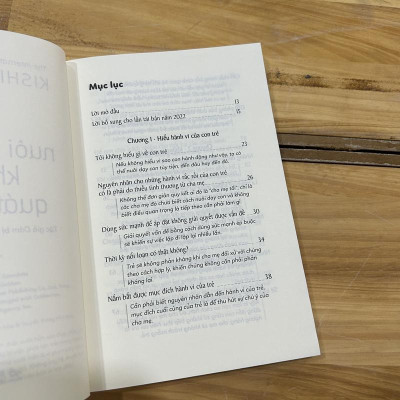 KISHI
nuôi
kh
quát
Mục lục
Lời mở đầu 13
Lời bổ sung cho lần tái bản năm 2022
Chương I - Hiểu hành vi của con trẻ
Tôi không hiểu gì về con trẻ 23
Nếu không hiểu vì sao con hành động như vậy, ta có
thể nuôi dạy con tùy tiện, đến đâu hay đến đó.
Nguyên nhân cho những hành vi rắc rối của con trẻ
có là phải do thiếu tình thương từ cha mẹ 26
Không thể đơn giản quy kết ai đó là "cha mẹ tồi", chỉ là
các cha mẹ đó chưa biết cách nuôi dạy con và không
biết điều quan trọng là tiếp theo cần phải làm gì
Dùng sức mạnh để áp đặt không giải quyết được vấn đề 30
Giải quyết vấn đề bằng cách dùng sức mạnh ép buộc
sẽ khiến sự việc lặp đi lặp lại nhiều lần.
Thời kỳ nổi loạn có thật không? 34
Trẻ sẽ không phản kháng nếu cha mẹ đối xử với chúng
theo cách hợp lý, khiến chúng không cần phải phản
kháng lại
Nắm bắt được mục đích hành vi của trẻ 38
Cần phải biết nguyên nhân dẫn đến hành vi của trẻ,
mục đích cuối cùng của trẻ là để thu hút sự chú ý của
cha mẹ.